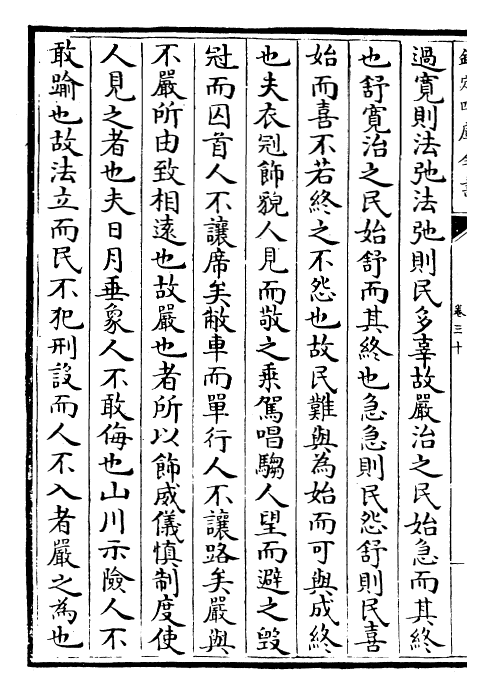 欽定四庫全書
卷三十
過寛則法弛法弛則民多辜故嚴治之民始急而其終
也舒寛治之民始舒而其終也急急則民怨舒則民喜
始而喜不若終之不怨也故民難與為始而可與成終
也夫衣冠飾貌人見而敬之乗駕唱騶人望而避之毁
冠而囚首人不讓席矣敝車而單行人不讓路矣嚴與
不嚴所由致相遠也故嚴也者所以飾威儀慎制度使
人見之者也夫日月垂象人不敢侮也山川示險人不
敢踰也故法立而民不犯刑設而人不入者嚴之為也